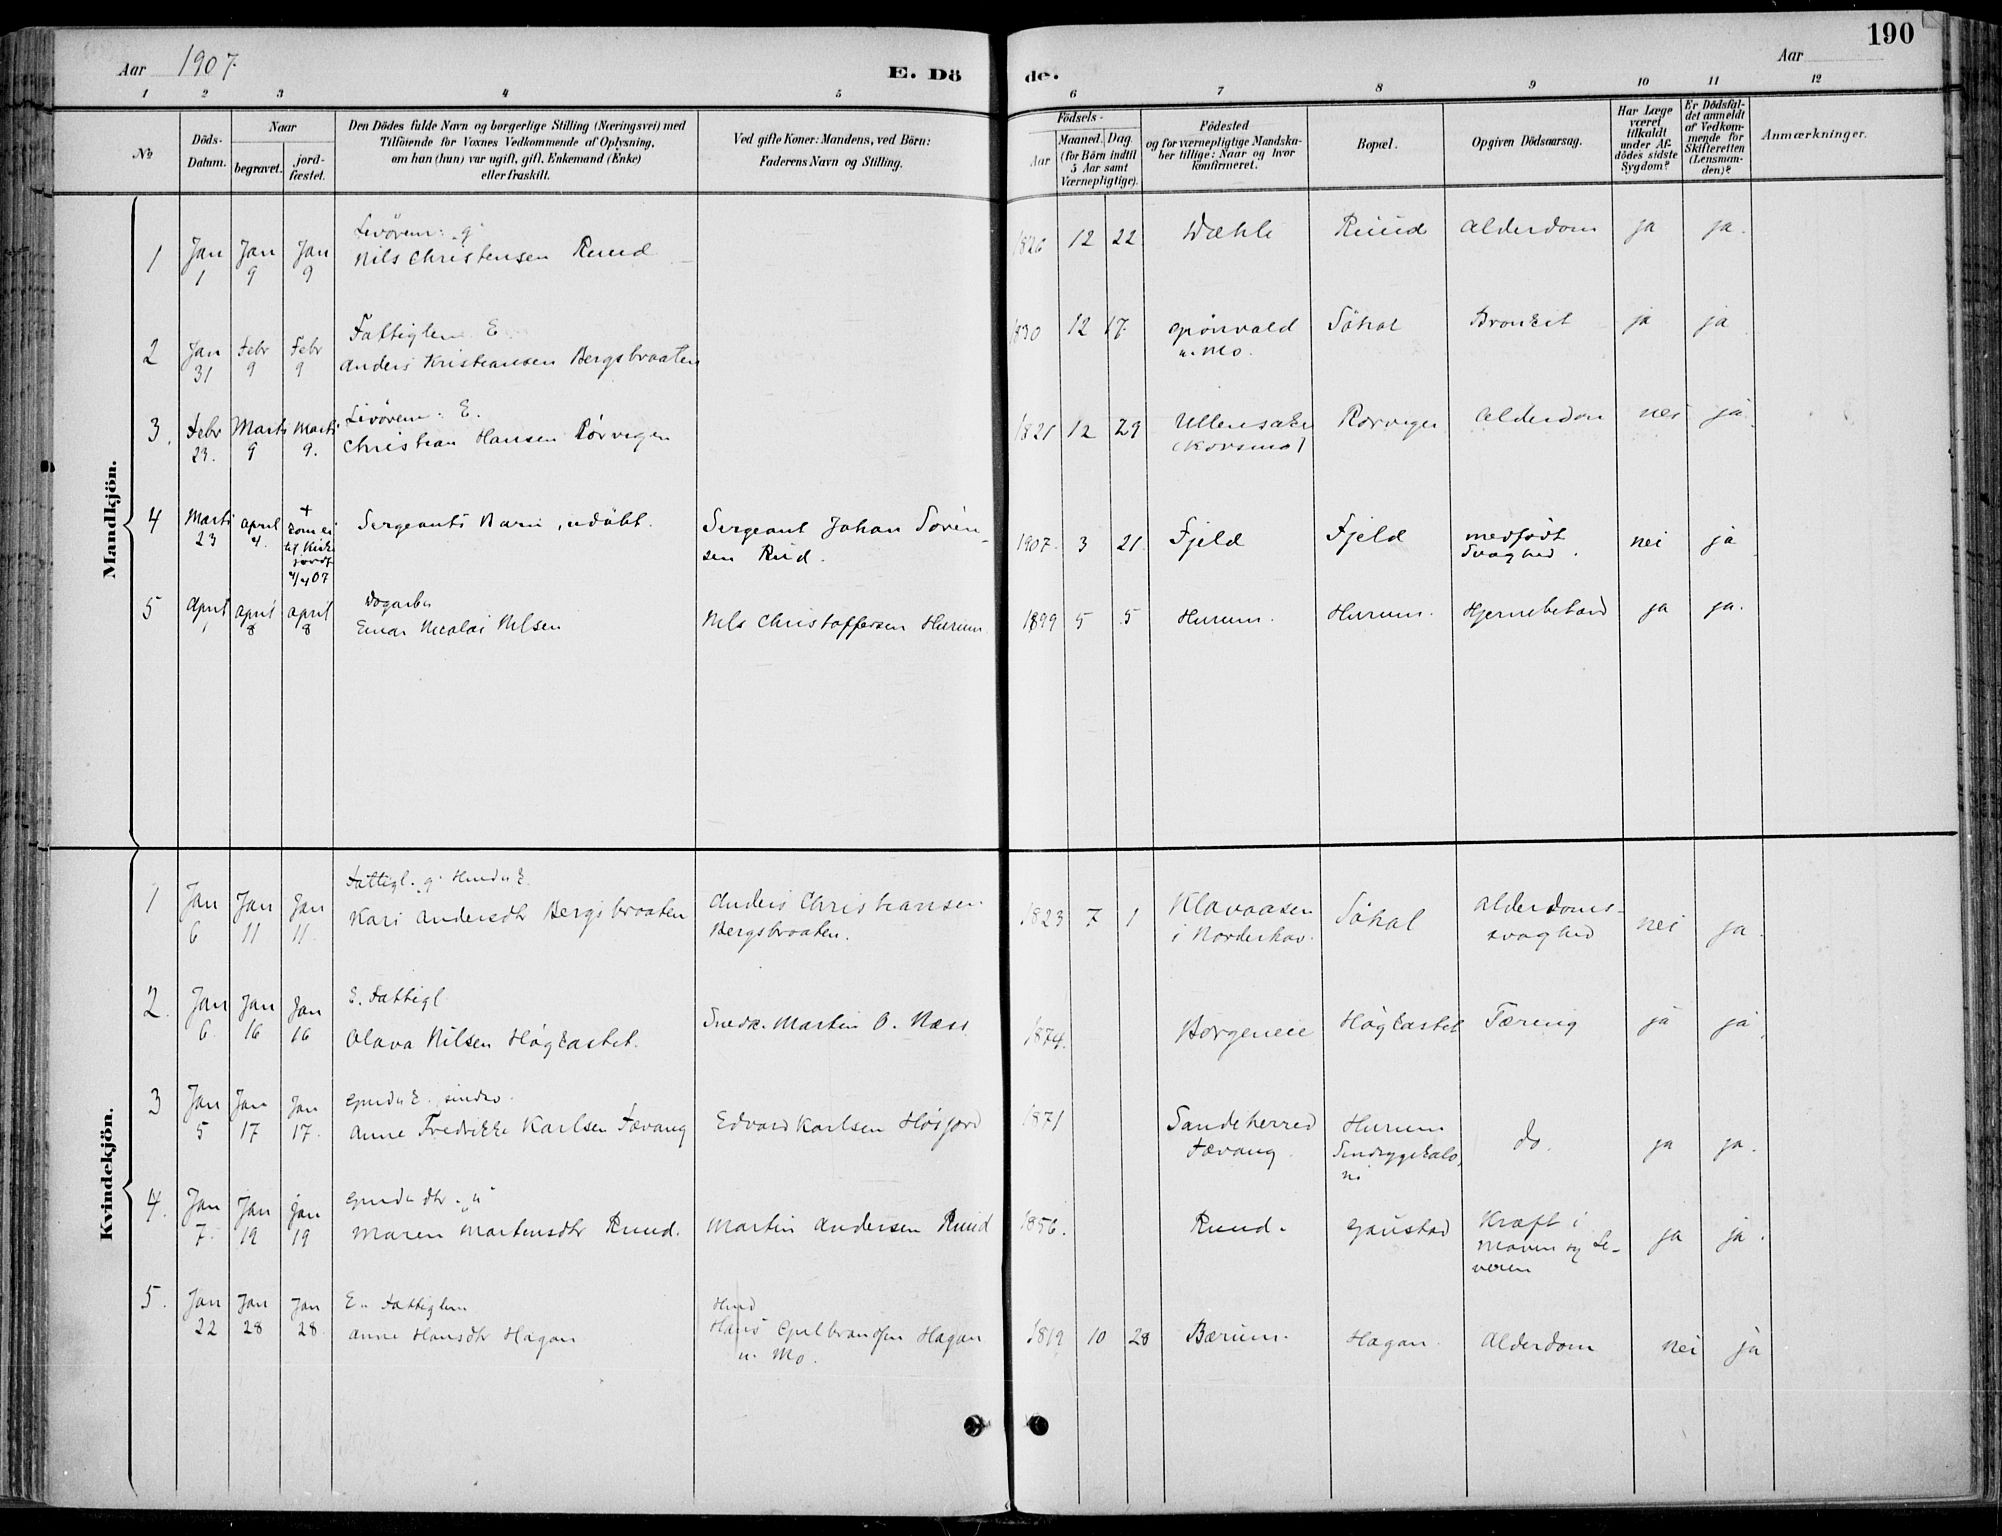 Aar 1907.
E. Dö
de.
Aar
190
1 2 3 4 5 6 7 8 9 10 11 12
No
Döds-Datum.
Naar
begravet.
jord-fæstet.
Den Dödes fulde Navn og borgerlige Stilling (Næringsvei) med
Tilföiende for Voxnes Vedkommende af Oplysning,
om han (hun) var ugift, gift, Enkemand (Enke)
eller fraskilt.
Ved gifte Koner: Mandens, ved Börn:
Faderens Navn og Stilling.
Födsels-
Aar
Maaned. Dag.
(for Börn indtil
5 Aar samt
Værnepligtige).
Födested
og for værnepligtige Mandska-
ber tillige: Naar og hvor
konfirmeret.
Bopæl.
Opgiven Dödsaarsag.
Har Læge
været
tilkaldt
under Af-
dödes sidste
Sygdom?
Er Dödsfal-
det anmeldt
af Vedkom-
mende for
Skifteretten
(Lensman-
den)?
Anmærkninger.
Mandkjön.
1 Jan 1 Jan 9 Jan 9 Livörem: g
Nils Christensen Ruud 1826 12 22 Wæhle Ruud Alderdom ja ja.
2 Jan 31 Febr 9 Febr 9 Fattiglem E.
Anders Kristiansen Bergsbraaten 1830 12 17. Grönvald
u. Mo. Söhol Bronkit ja ja
3. Febr 23. Marts 9 Marts 9. Livörem: E.
Christian Hansen Rörvigen 1821 12 29 Ullensaker
(Korsmo) Rörvigen Alderdom nei ja.
4 Marts 23 April 4. + Kom ei til Kirke jordf 4/4 07 Sergeants Barn, udöbt. Sergeant Johan Sören-
sen Rud. 1907. 3 21. Fjeld Fjeld medfödt
Svaghed. nei ja
5 April 1 April 8 April 8 Dagarb
Einar Nicolai Nilsen Nils Christoffersen Hurum. 1899 5 5 Hurum. Hurum. Hjernebetænd ja ja.
Kvindekjön.
1 Jan 6 Jan 11 Jan 11. Fattigl. g.
Kari Andersdtr Bergsbraaten Anders Christiansen
Bergsbraaten. 1823 7 1 Klavaasen
i Norderhov. Söhol Alderdoms-
svaghed nei ja.
2. Jan 6 Jan 16 Jan 16 E. Fattigl
Olava Nilsen Høgkastet. Snedk. Martin O. Næss 1874. Borgeneie Høgkastet Tæring ja ja.
3 Jan 5 Jan 17 Jan 17.
Anne Fredrikke Karlsen Fævang Edvard Karlsen Höijord 1871 Sandeherred
Fævang. Hurum do. ja ja.
4. Jan 7. Jan 19 Jan 19 Grd dtr. "u"
Maren Martinsdtr Ruud. Martin Andersen Ruud 1856. Ruud. Gaustad Kræft i
Maven og Le-
veren ja ja.
5. Jan 22 Jan 28 Jan 28. E. Fattiglem
Anne Hansdtr Hagan Hmd
Hans Gulbrandsen Hagan
u. Mo. 1819 10 28 Bærum. Hagan. Alderdom nei ja